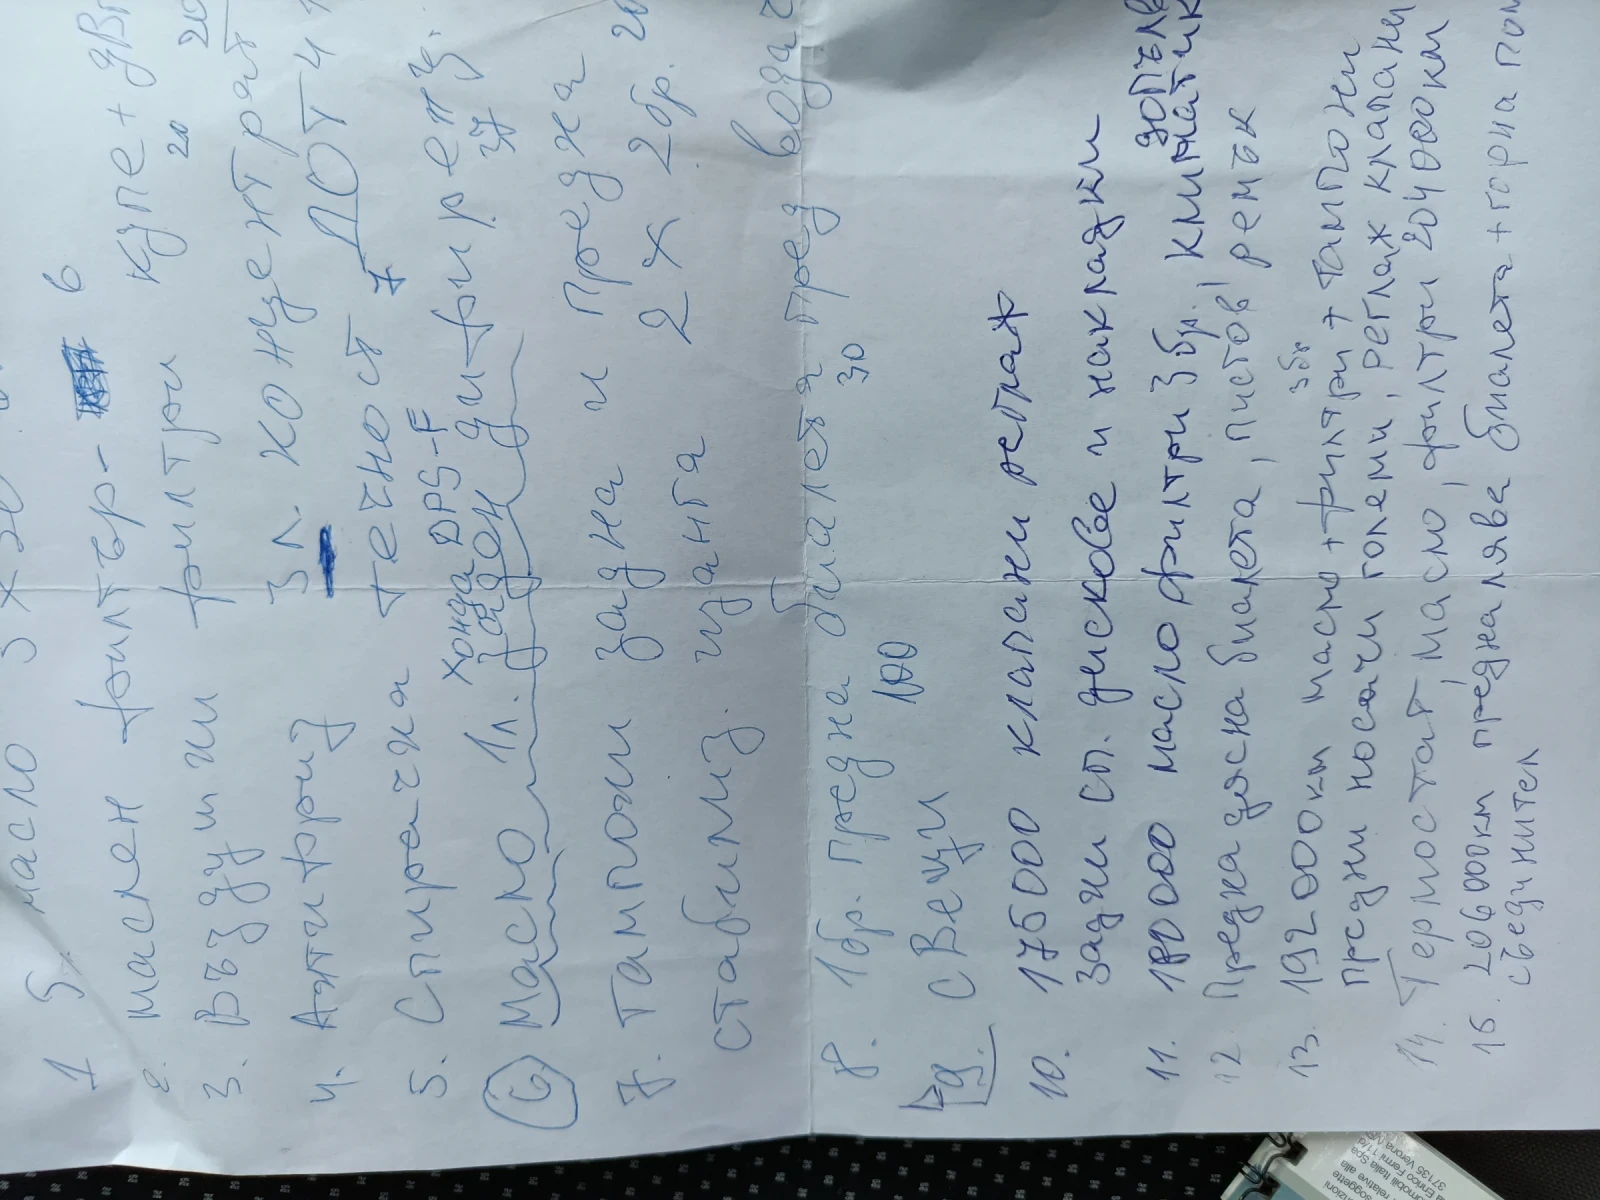 1 5л масло 5 x 20
2. маслен филтър - 6
3. Въздушни филтри купе + дв
20 20
4. Антифриз 3л. концентрат
5. Спирачна течност ДОТ 4
7
Хонда DPS-F
6 Масло 1л. заден диференц.
37
7. Тампони задна и предна
стабилиз. щанга 2 x 2бр.
8. 1бр. предна биалета пред вода
100 30
9. свещи
10. 175000 клапани реглаж
Задни сп. дискове и накладки
11. 180000 масло филтри 3бр., климатик
допълв
12 Предна дясна биалета, пистов ремък
3бр
13. 192000км масло + филтри + тампони
предни носачи големи, реглаж клапани
14. Термостат, масло, филтри 204000км
15. 206000км предна лява биалета + горна
съединител
Enrico Fermi 1
37135 Verona